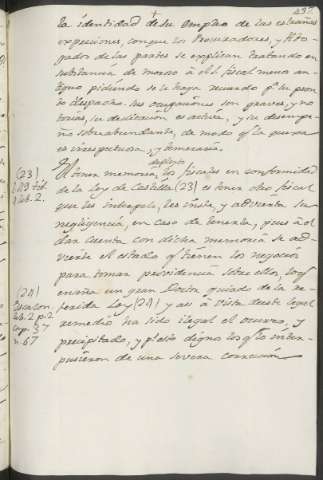 437
la identidad de su empleo de las extrañas
expresiones, con que los Procuradores, y Abo-
gados de las partes se explican tratando en
substancia de moroso á el fiscal menos an-
tiguo pidiendo se le haga recuerdo pª. su pron-
to despacho: sus ocupaciones son graves, y no-
torias, su dedicacion es activa, y su desempe-
ño sobreabundante, de modo qᵉ. la quexa
es irrespetuosa, y temeraria.
memoria, los fiscales en conformidad
de la Ley de Castilla (23) es tener otro fiscal
que las
negligencia, en caso de tenerla, pues á el
dar cuenta con dicha memoria se ad-
vierte el estado qᵉ. tienen los negocios
para tomar providencia sobre ellos, como
enseña un gran Docto, guiado de la re-
ferida Ley (24) y asi á vista de este legal
remedio ha sido ilegal el ocurso, y
precipitado, y pr. ello dignos los qᵉ. lo inter-
pusieron de una severa correccion
(23)
Lib. 2.
(24)
Lib. 2 p. 2
cap. 37
n. 67